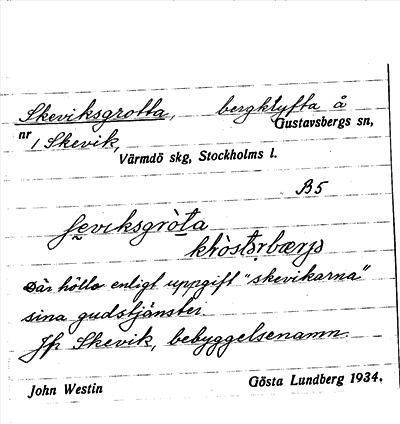 Skeviksgrotta, bergklyfta å
nr 1 Skevik, Gustavsbergs sn,
Värmdö skg, Stockholms l.
B5
ʃe̯viksgrò̀ta
klòstərbærjə
Där höllo enligt uppgift "skevikarna"
sina gudstjänster.
Jfr Skevik, bebyggelsenamn.
John Westin Gösta Lundberg 1934.